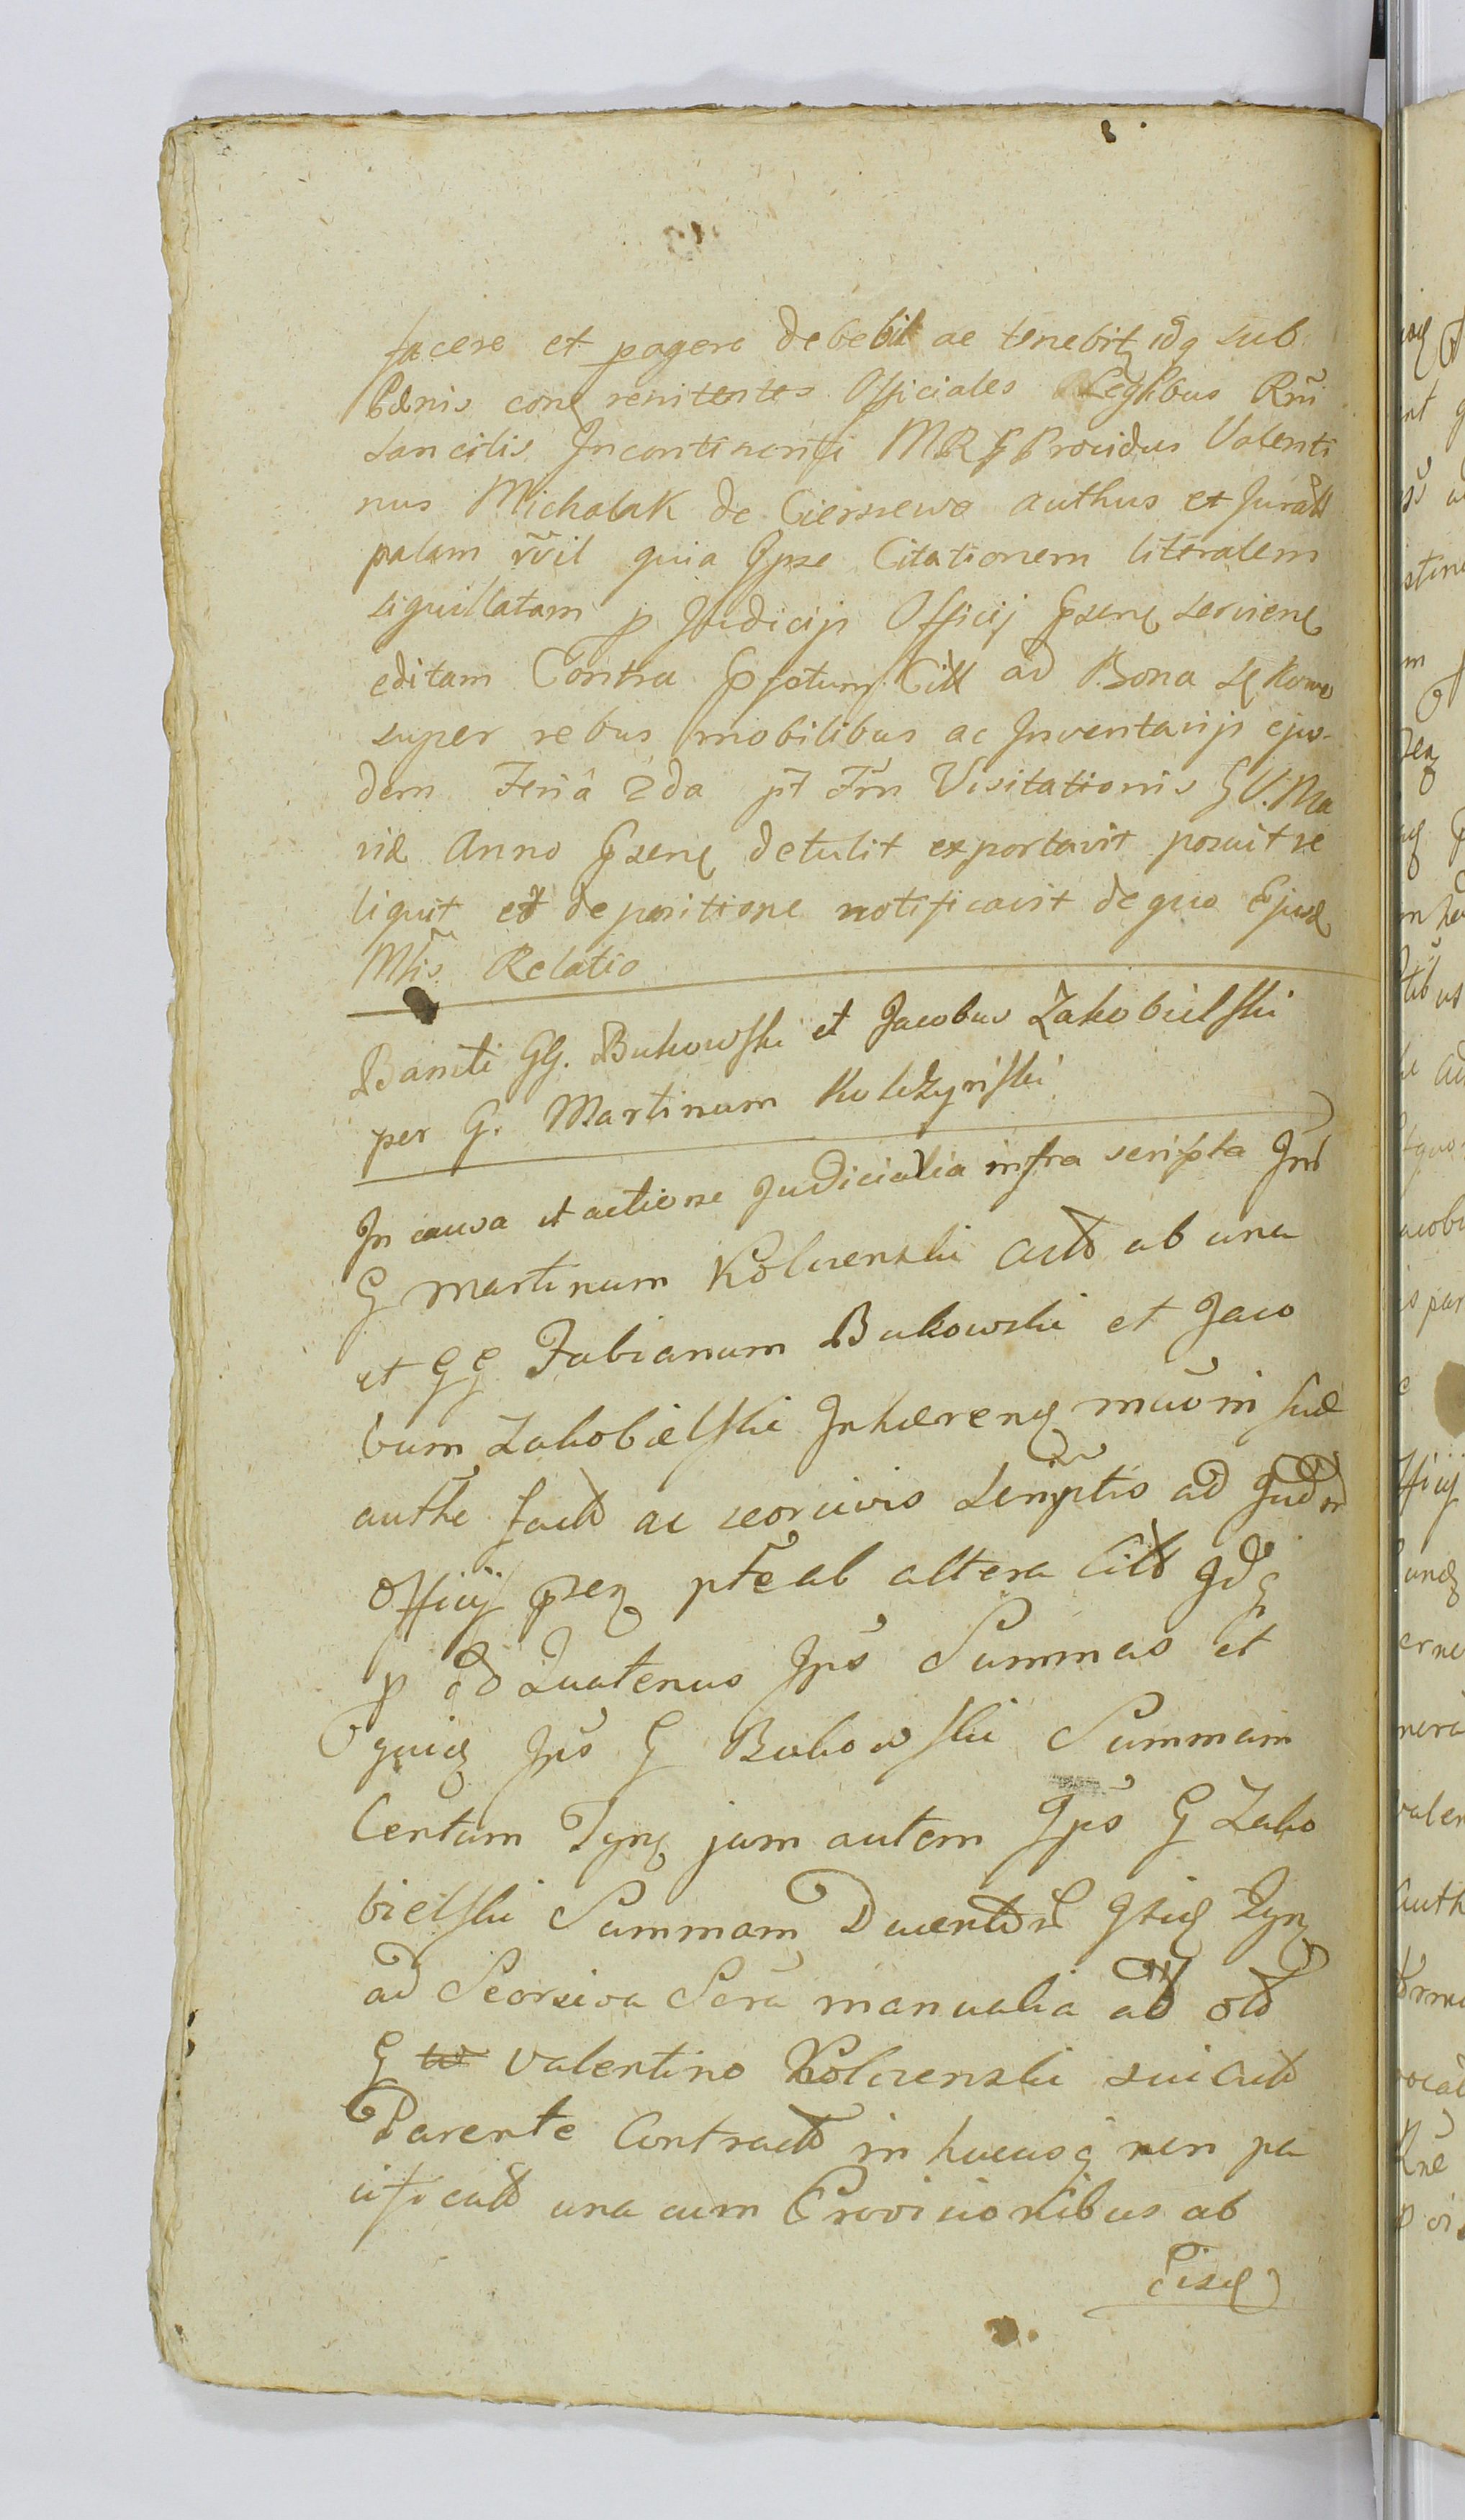 facere et pagere debebit ac tenebitꝫ idq sub
Pœnis conꝫ renitentes Officiales Legibus Rñi
sancitis Incontinenti MRG Providus Valenti
nus Michalak de Cierzewo authus et Juratt
palam rñvil quia Ipse Citationem literalem
siguillatam p Judicijs Officij Psenꝫ servienꝫ
editam Contra Pfatum Citt ad Bona Lękowo
super rebus mobilibus ac Inventarijs ejus-
dem Feriâ 2da pt Frm Visitationis B V. Ma
riæ Anno Psenꝫ detulit exportavit posuit re
liquit et de positione notificavit de quo Ejusꝫ
Mlis Relatio
Baniti GG. Bukowski et Jacobus Zakobielski
per G. Martinum Kolczynski
In causa et actione Judicialia infra scripta Int
G Martinum Kolczenski Actt ab una
et GG Fabianum Bukowski et Jaco
bum Zakobielski Inhærenꝫ manõni suæ
authe factt ac seorsivis scriptis ad Judm
Officij psenꝫ pte ab altera Citt Idꝫ
p ad Quatenus Ips Summas et
quidꝫ Ips G Bukowski Summam
Centum Tynꝫ jam autem Ips G Zako
bielski Summam Ducentor similꝫ Tynꝫ
ad Seorsiva Scra manualia ab olt
G Valentino Kolczenski sui Actt
Parente Contractt in hucusq non pa
cificatt una cum Provisionibus ab
Eisdꝫ